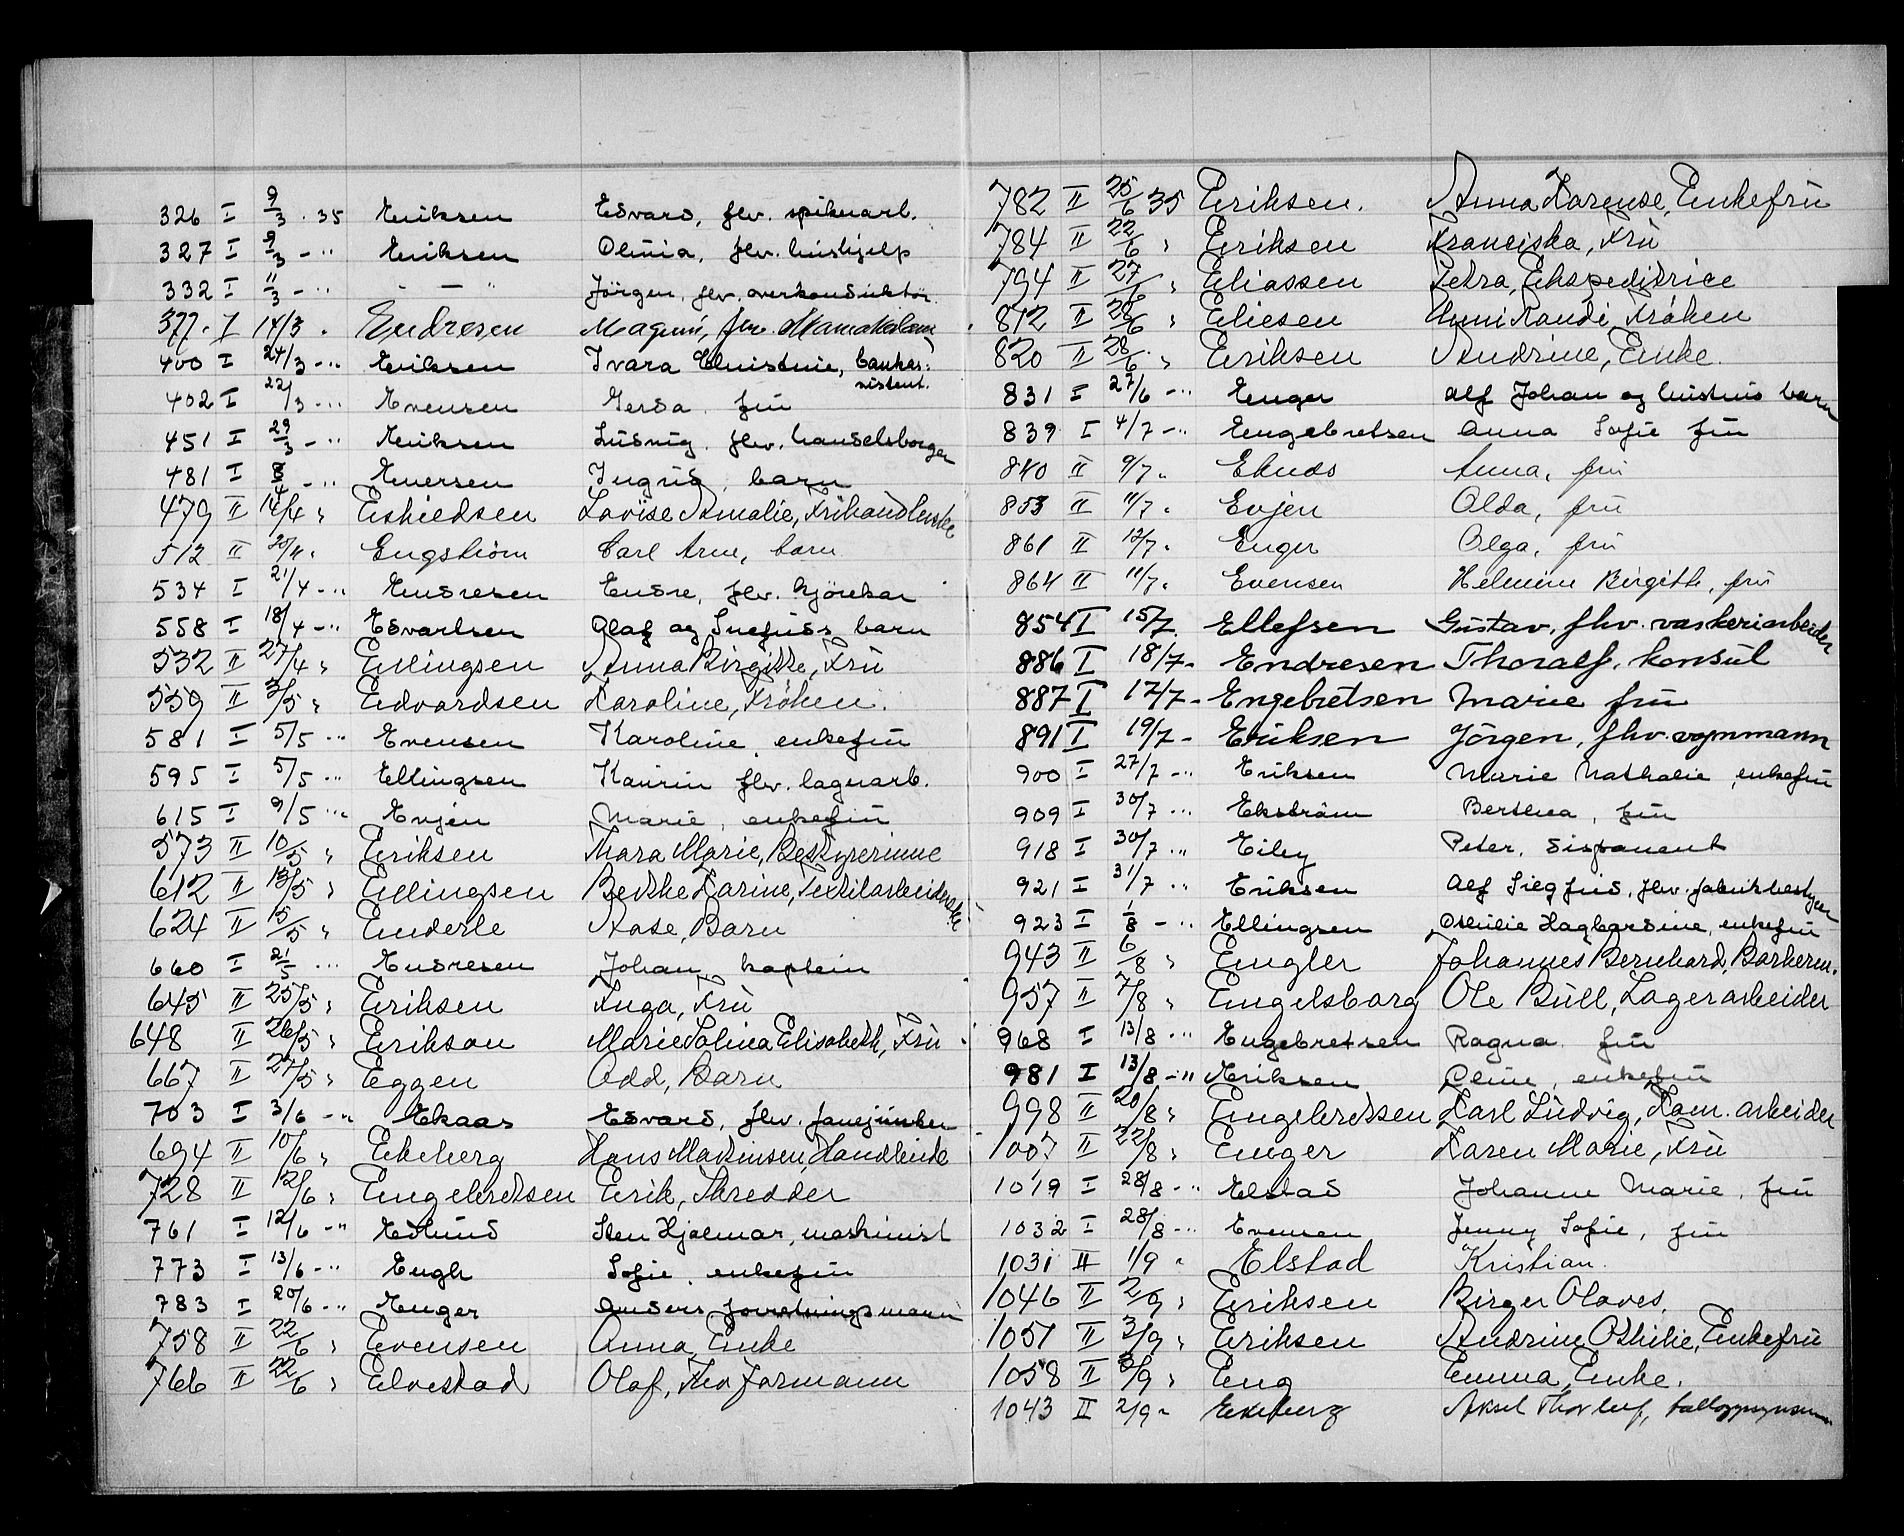 326 I 9/3 . 35 Eriksen Edvard, fhv. spikerarb.
327 I 9/3 - " Eriksen Olivia, fhv. hushjelp
332 I 11/3 - " - " - Jörgen, fhv. overkonduktör.
377. I 14/3 . Endresen Magnus, fhv.
400 I 24/3 - " Eriksen Ivara Christine, bankas-
sistent.
402 I 22/3 - " Evensen Gerda, fru
451 I 29/3 - " Eriksen Ludvig, fhv. handelsborger
481 I 8/4 - " Eversen Ingrid, barn
479 II 14/4 " Eskildsen Lovise Amalie, Frihandlerske
512 II 20/4 " Engström Carl Arne, barn
534 I 21/4 - " Endresen Endre, fhv. kjörekar
558 I 18/4 - " Edvartsen Olaf og barn
532 II 27/4 " Ellingsen Anna Birgitte, Fru
559 II 3/5 " Edvardsen Karoline, Fröken.
581 I 5/5 - " Evensen Karoline, enkefru
595 I 5/5 - " Ellingsen Kaurin fhv. lagerarb.
615 I 9/5 - " Evjen Marie, enkefru
573 II 10/5 " Eriksen Thara Marie, Bestyrerinne
612 II 13/5 " Ellingsen Berthe Karine, Textilarbeiderske
624 II 15/5 " Enderle Aase, Barn
660 I 21/5 - " Endresen Johan, kaptein
645 II 25/5 " Eriksen Inga, Fru
648 II 26/5 " Erikson Marie Solvea Elisabeth, Fru
667 II 27/5 " Eggen Odd, Barn
703 I 3/6 - " Ekaas Edvard, fhv.
694 II 10/6 " Ekeberg Hans Madinsen,
728 II 12/6 " Engebretsen Erik, Skredder
761 I 12/6 - " Edlund Sten Hjalmar, maskinist
773 I 13/6 - " Engh Sofie, enkefru
783 I 20/6 - " Enger Anders forretningsmann
758 II 22/6 " Evensen Anna, Enke
766 II 22/6 " Elvestad Olaf, Fhv Formann
782 II 25/6 35 Eriksen. Anna Karense, Enkefru
784 II 22/6 " Eriksen Franciska, Fru
794 II 27/6 " Eliassen Petra, Ekspeditrice
812 II 28/6 " Eliesen Unni Randi, Fröken
820 II 28/6 " Eriksen Andrine, Enke.
831 I 27/6 - " Enger Alf Johan og hustrus barn
839 I 4/7 - " Engebretsen Anna Sofie fru
840 II 9/7 " Eknes Anna, fru
853 II 11/7 " Evjen Olda, fru
861 II 12/7 " Enger Olga, fru
864 II 11/7 " Evensen Helmine Birgitte, fru
854 I 15/7 Ellefsen Gustav, fhv. vaskeriarbeider
886 I 18/7 - Endresen Thoralf, konsul
887 I 17/7 - Engebretsen Marie fru
891 I 19/7 - Eriksen Jörgen, fhv. vognmann
900 I 27/7 - " Eriksen Marie Nathalie, enkefru
909 I 30/7 - " Ekström Berthea, fru
918 I 30/7 - " Eiley Peter, disponent
921 I 31/7 - " Eriksen Alf Siegfrid, fhv. fabrikbestyrer
923 I 1/8 - " Ellingsen Othilie Hagbardine, enkefru
943 II 6/8 " Engler Johannes Bernhard, Barkerm.
957 II 7/8 " Engelsborg Ole Bull, Lagerarbeider
968 I 13/8 - " Engebretsen Ragna fru
981 I 13/8 - " Eriksen Oline, enkefru
998 II 20/8 " Engebretsen Karl Ludvig, Kom. arbeider
1007 II 22/8 " Enger Karen Marie, Fru
1019 I 28/8 - " Elstad Johanne Marie, fru
1032 I 28/8 - " Evensen Jenny Sofie, fru
1031 II 1/9 " Elstad Kristian.
1046 II 2/9 " Eriksen Birger Olaves.
1051 II 3/9 " Eriksen Andrine Othilie, Enkefru
1058 II 5/9 " Eng Emma, Enke.
1043 II 2/9 " Ekeberg Aksel Thorleif,